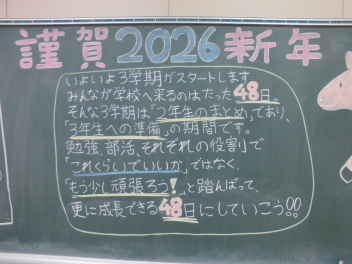 謹賀2026新年
いよいよ3学期がスタートします
みんなが学校へ来るのはたった48日。
そんな3学期は「2年生のまとめ」であり、
「3年生への準備」の期間です。
勉強、部活、それぞれの役割で
「これくらいでいいか」ではなく、
「もう少し頑張ろう!」と踏んばって、
更に成長できる48日にしていこう!!